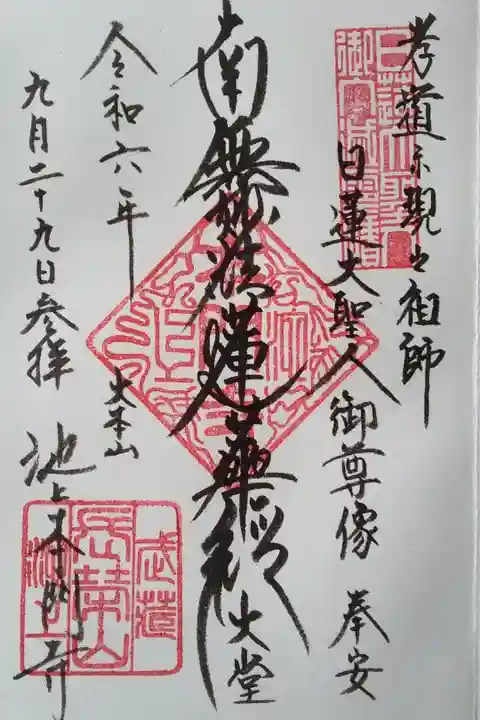 孝道示現之祖師
日蓮大聖人御尊像 奉安
南無妙法蓮華経
大堂
令和六年
九月二十九日参拝
大本山
池上本門寺